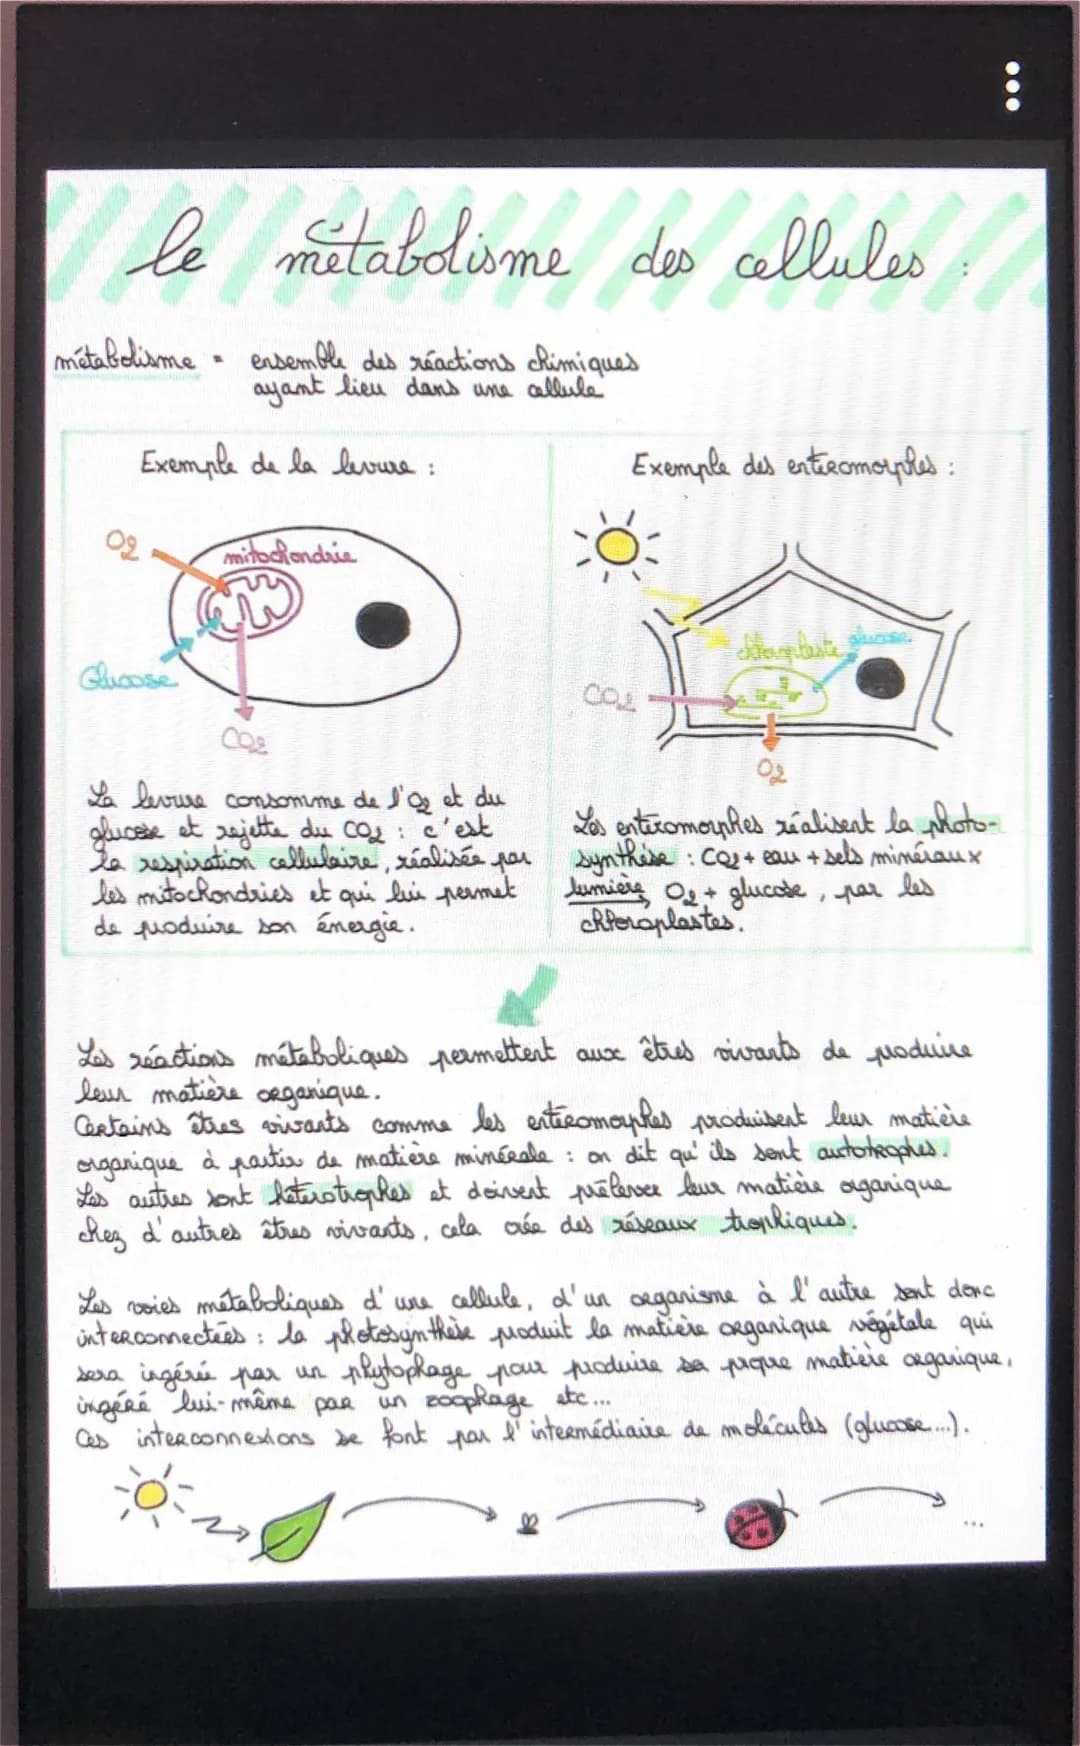 le métabolisme des cellules :
métabolisme = ensemble des réactions chimiques
ayant lieu dans une cellule
Exemple de la levure :
O2
mitochondrie
Glucose
CO2
La levure consomme de l'O2 et du
glucose et rejette du CO2 : c'est
la respiration cellulaire, réalisée par
les mitochondries et qui lui permet
de produire son énergie.
Exemple des entéromorphes :
chloroplaste
glucose
CO2
O2
Les entéromorphes réalisent la photo-
synthèse : CO2 + eau + sels minéraux
lumière O2 + glucose, par les
chloroplastes.
Les réactions métaboliques permettent aux êtres vivants de produire
leur matière organique.
Certains êtres vivants comme les entéromorphes produisent leur matière
organique à partir de matière minérale : on dit qu'ils sont autotrophes.
Les autres sont hétérotrophes et doivent prélever leur matière organique
chez d'autres êtres vivants, cela crée des réseaux trophiques.
Les voies métaboliques d'une cellule, d'un organisme à l'autre sont donc
interconnectées : la photosynthèse produit la matière organique végétale qui
sera ingérée par un phytophage pour produire sa propre matière organique,
ingéré lui-même par un zoophage etc...
Ces interconnexions se font par l'intermédiaire de molécules (glucose...).
...